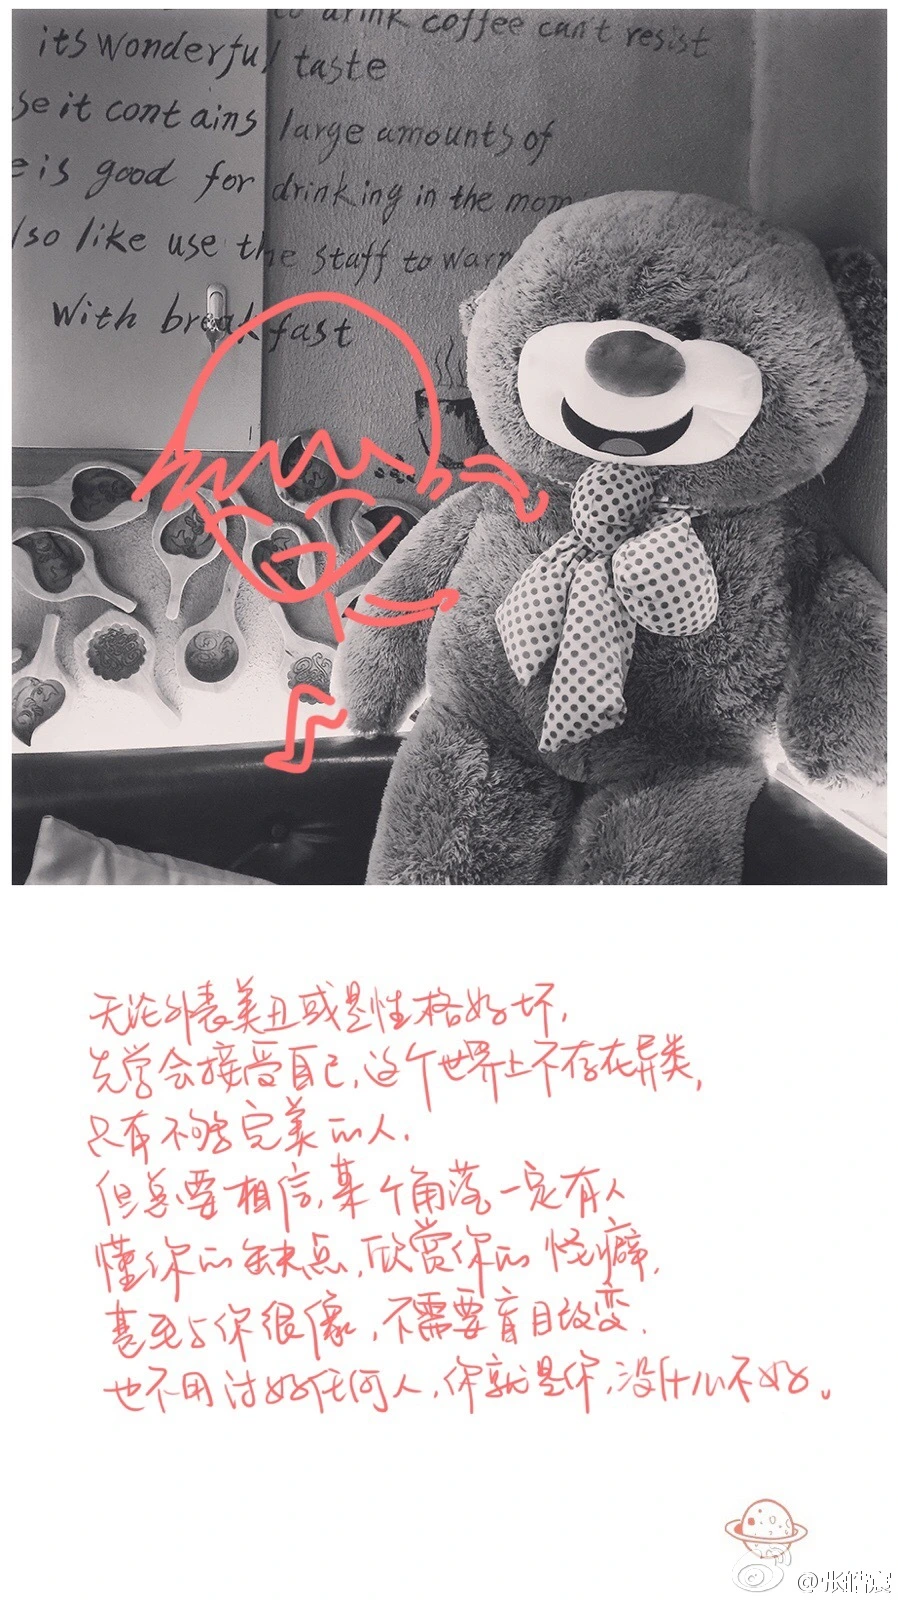 to drink coffee can't resist
its wonderful taste
se it contains large amounts of
e is good for drinking in the morn
lso like use the staff to warm
With breakfast
无论外表美丑或是性格好坏，
先学会接受自己，这个世界上不存在异类，
只有不够完美的人．
但总要相信，某个角落一定有人
懂你的缺点，欣赏你的怪癖，
甚至与你很像，不需要盲目改变．
也不用讨好任何人，你就是你，没什么不好。